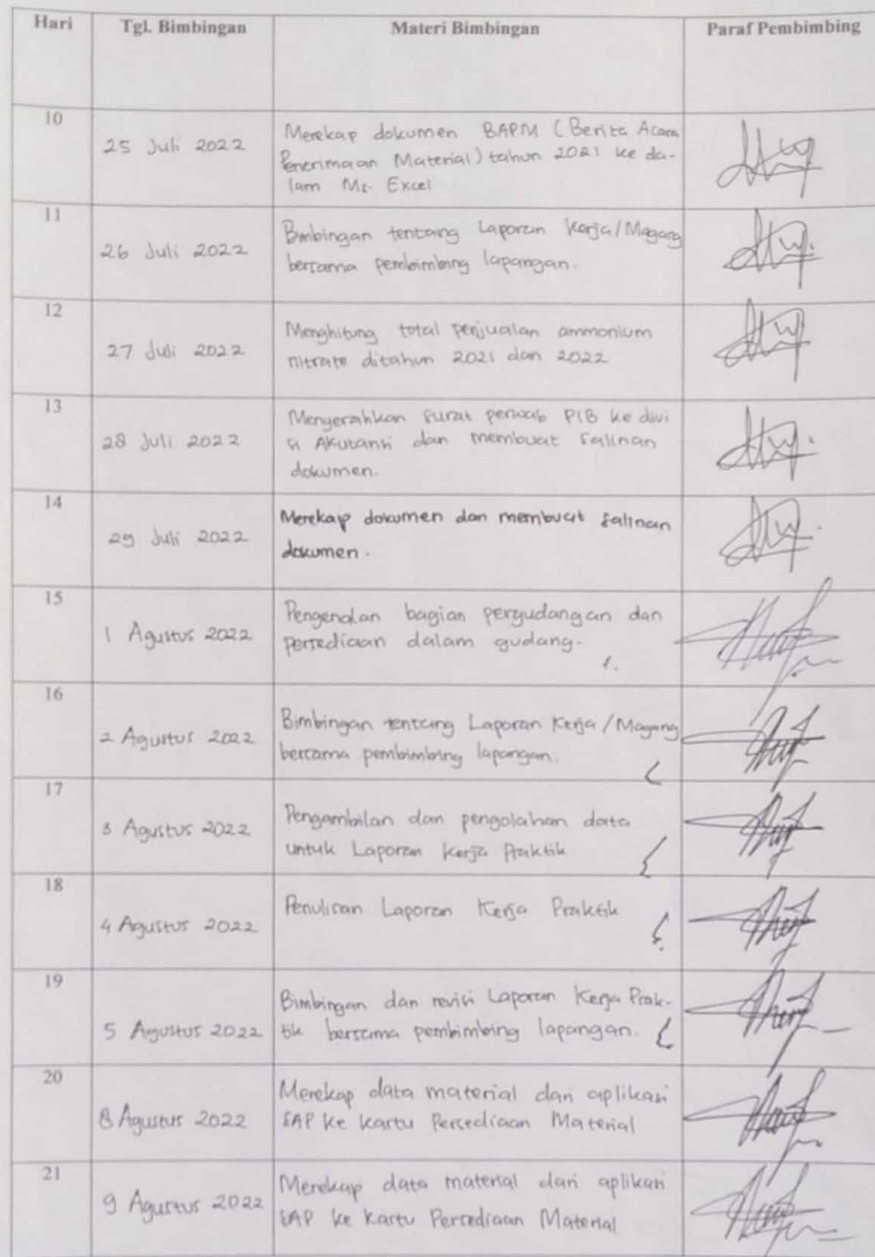 Hari Tgl. Bimbingan Materi Bimbingan Paraf Pembimbing
10
25 Juli 2022
Merekap dokumen BAPM (Berita Acara
Penerimaan Material) tahun 2021 ke da-
lam Ms. Excel
11
26 Juli 2022
Bimbingan tentang Laporan Kerja/Magang
bersama pembimbing lapangan.
12
27 Juli 2022
Menghitung total penjualan ammonium
nitrate ditahun 2021 dan 2022
13
28 Juli 2022
Menyerahkan surat PIB ke divi
si Akutansi dan membuat salinan
dokumen.
14
29 Juli 2022
Merekap dokumen dan membuat salinan
dokumen.
15
1 Agustus 2022
Pengenalan bagian pergudangan dan
persediaan dalam gudang.
16
2 Agustus 2022
Bimbingan tentang Laporan Kerja/Magang
bersama pembimbing lapangan.
17
3 Agustus 2022
Pengambilan dan pengolahan data
untuk Laporan Kerja Praktik
18
4 Agustus 2022
Penulisan Laporan Kerja Praktik
19
5 Agustus 2022
Bimbingan dan revisi Laporan Kerja Prak-
tik bersama pembimbing lapangan.
20
8 Agustus 2022
Merekap data material dari aplikasi
SAP ke Kartu Persediaan Material
21
9 Agustus 2022
Merekap data material dari aplikasi
SAP ke Kartu Persediaan Material